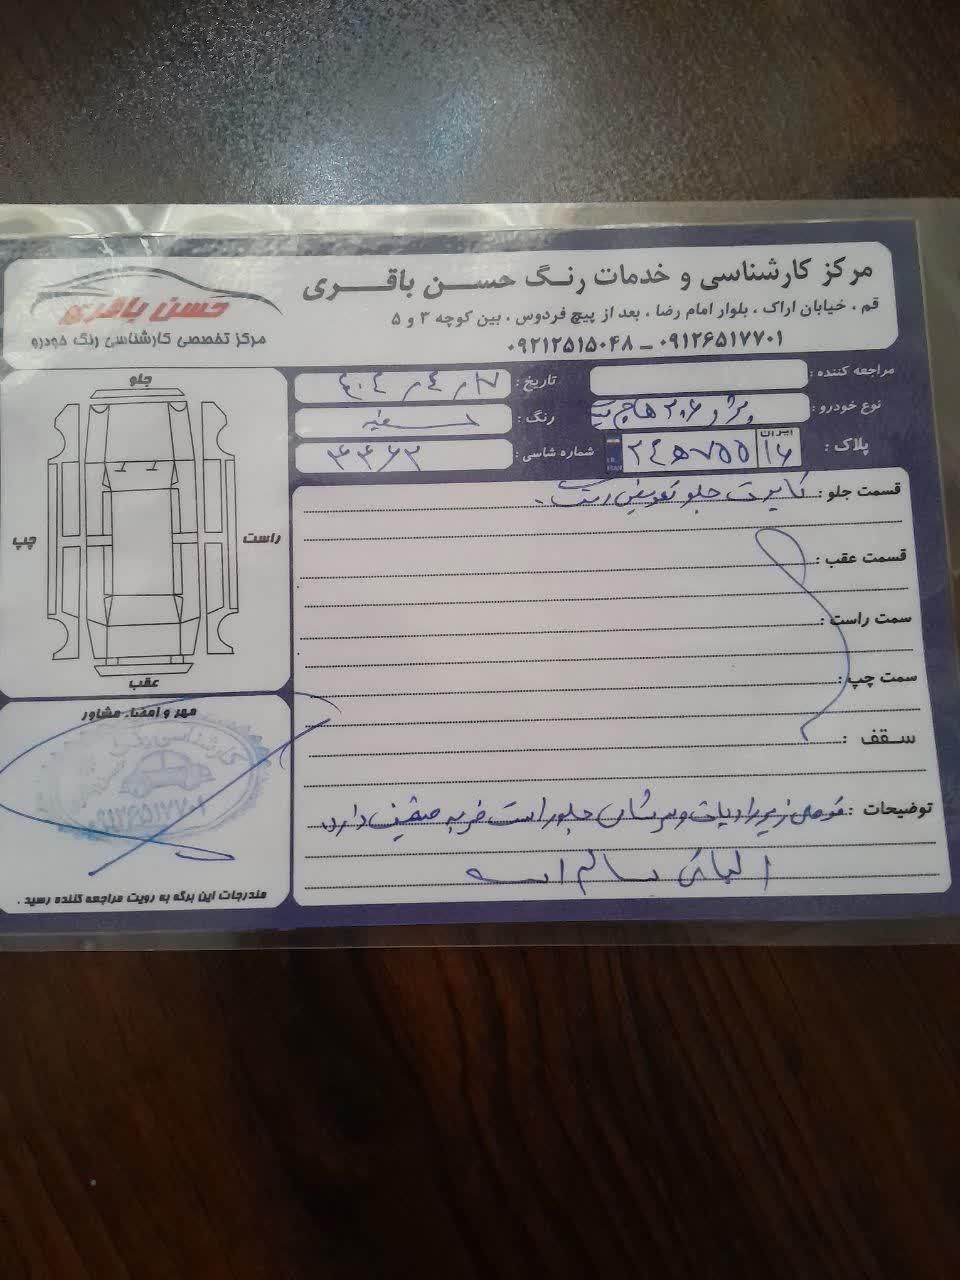 مرکز کارشناسی و خدمات رنگ حسن باقری
قم ، خیابان اراک ، بلوار امام رضا ، بعد از پیچ فردوس ، بین کوچه ۳ و ۵
۰۹۱۲۶۵۱۷۷۰۱ - ۰۹۲۱۲۵۱۵۰۴۸
حسن باقری
مرکز تخصصی کارشناسی رنگ خودرو
مراجعه کننده :
تاریخ : ۴۰۴٫۴٫۱۷
نوع خودرو : پژو ۲۰۶ هاچ بک
رنگ : سفید
پلاک : ایران ۱۶
شماره شاسی :
جلو
راست
چپ
عقب
قسمت جلو : کاپوت جلو تعویض رنگ.
قسمت عقب :
سمت راست :
سمت چپ :
سقف :
توضیحات : قوطی زیر رادیات و سرشاسی جلو راست ضربه خفیف دارد.
الباقی سالم است
مهر و امضاء مشاور
کارشناسی رنگ
۰۹۱۲۶۵۱۷۷۰۱
مندرجات این برگه به رویت مراجعه کننده رسید .